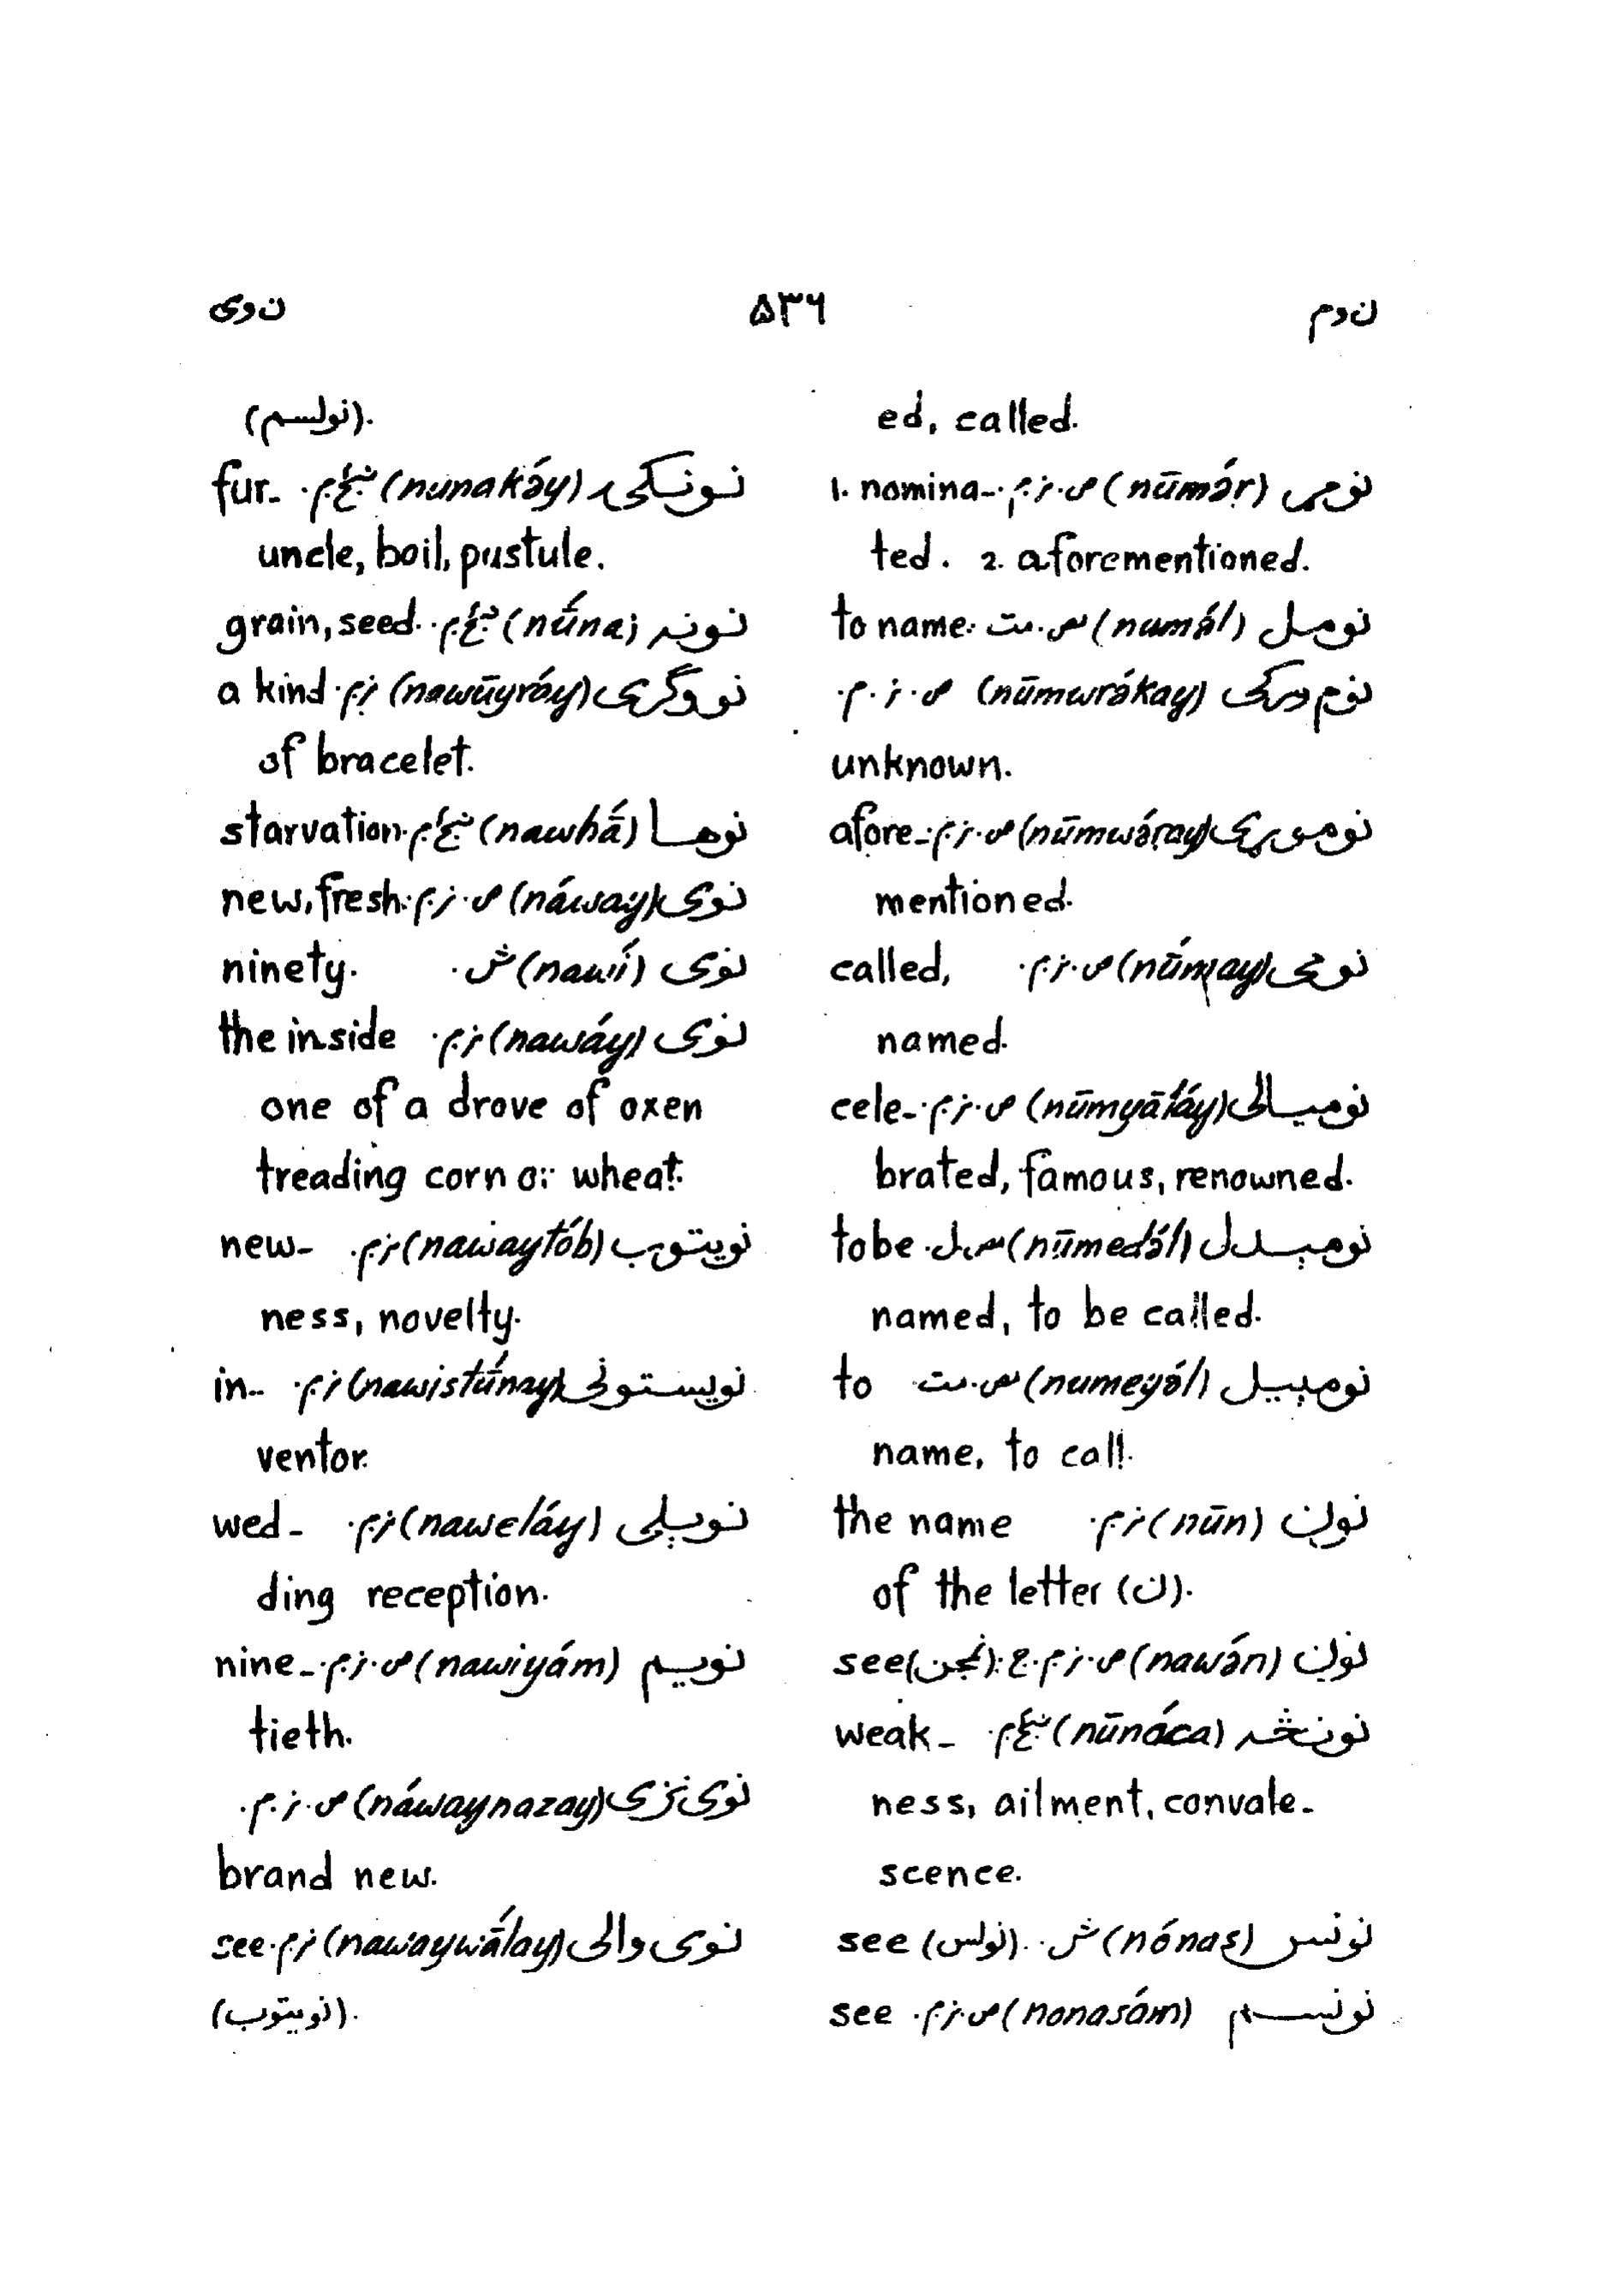 ن و م ۵۳۶ ن و ی
ed, called.
نومړ (nūmə́r) ص. ز. م. 1. nomina-
ted. 2. aforementioned.
نومل (numə́l) مص. مت. to name.
نوم ورکی (nūmwrákay) ص. ز. م.
unknown.
نوموړی (nūmwáray) ص. ز. م. afore-
mentioned.
نومی (nū́may) ص. ز. م. called,
named.
نومیالی (nūmyāláy) ص. ز. م. cele-
brated, famous, renowned.
نومېدل (nūmedə́l) مص. ل. to be
named, to be called.
نومېیل (numeyə́l) مص. مت. to
name, to call.
نون (nūn) ز. م. the name
of the letter (ن).
نون (nawə́n) ص. ز. م. ج. see (نجن).
نونڅه (nūnáca) ښځ. م. weak-
ness, ailment, convale-
scence.
نونس (nónas) ش. see (نولس).
نونسم (nonasə́m) ص. ز. م. see
(نولسم).
نونکۍ (nunakə́y) ښځ. م. fur-
uncle, boil, pustule.
نونه (nū́na) ښځ. م. grain, seed.
نووګری (nawūgráy) ز. م. a kind
of bracelet.
نوها (nawhā́) ښځ. م. starvation.
نوی (náway) ص. ز. م. new, fresh.
نوی (nawí) ش. ninety.
نوی (nawáy) ز. م. the inside
one of a drove of oxen
treading corn or wheat.
نویتوب (nawaytób) ز. م. new-
ness, novelty.
نویستونی (nawistū́nay) ز. م. in-
ventor.
نوېلی (naweláy) ز. م. wed-
ding reception.
نویم (nawiyám) ص. ز. م. nine-
tieth.
نوی نزی (náwaynazay) ص. ز. م.
brand new.
نوی والی (nawaywā́lay) ز. م. see
(نویتوب).